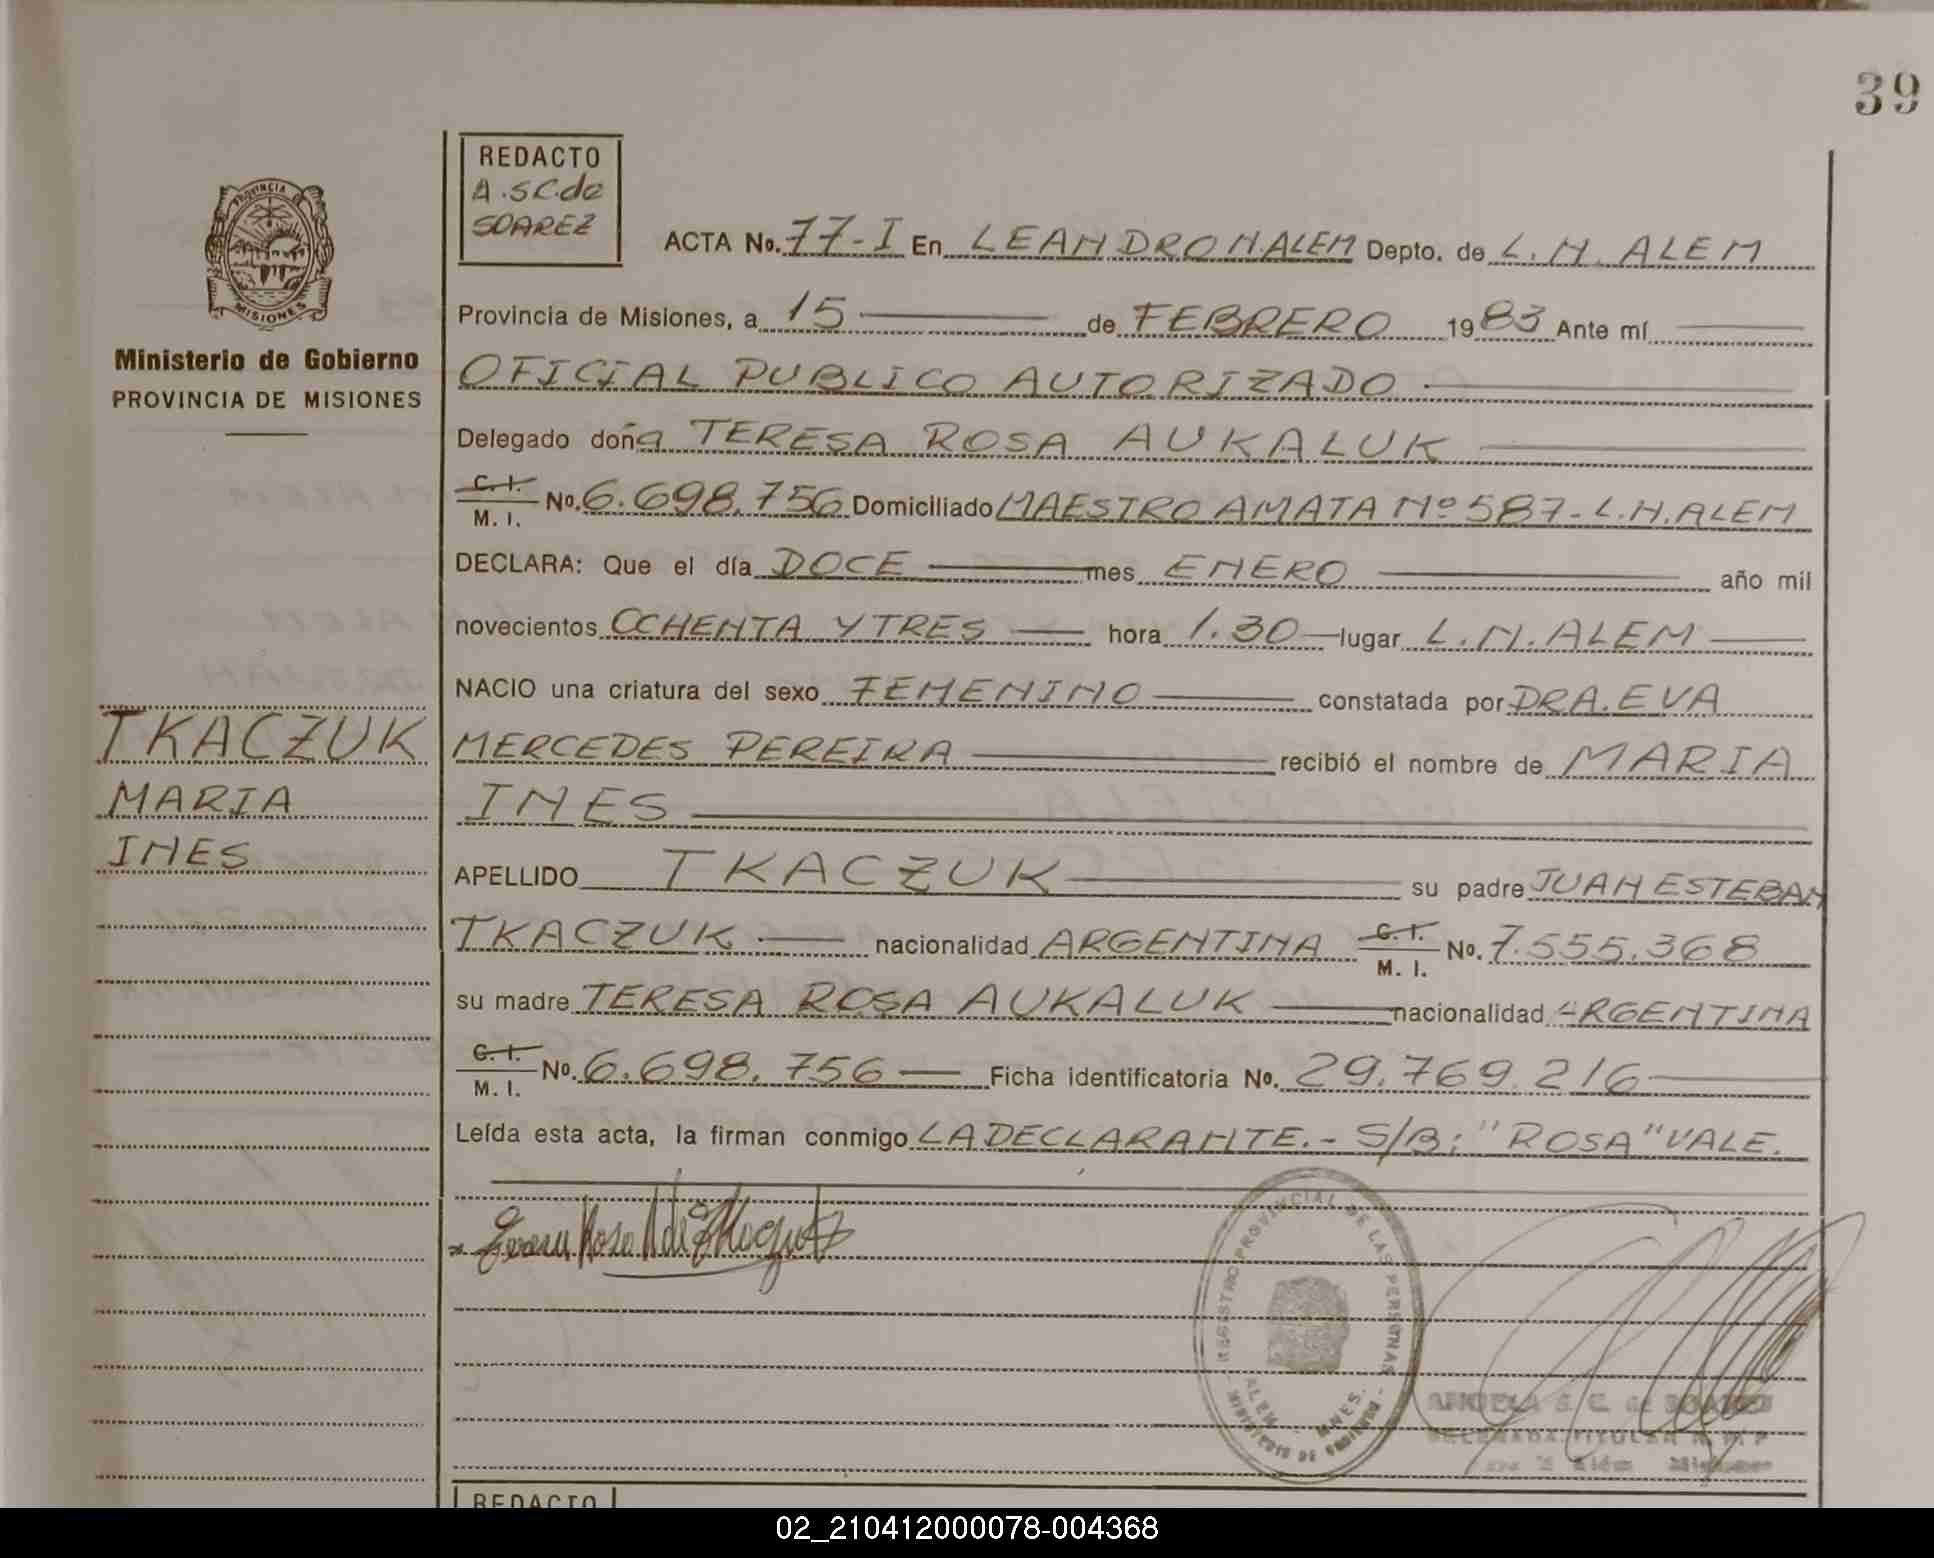 39
REDACTO
A.S.C. de
SOAREZ
PROVINCIA
MISIONES
Ministerio de Gobierno
PROVINCIA DE MISIONES
ACTA No. 77-I En LEANDRO N. ALEM Depto. de L.N. ALEM
Provincia de Misiones, a 15 de FEBRERO 1983 Ante mí
OFICIAL PUBLICO AUTORIZADO
Delegado doña TERESA ROSA AUKALUK
C. I. M. I. No. 6.698.756 Domiciliado MAESTRO AMATA Nº 587- L.N. ALEM
DECLARA: Que el día DOCE mes ENERO año mil
novecientos OCHENTA Y TRES hora 1.30 lugar L.N. ALEM
NACIO una criatura del sexo FEMENINO constatada por DRA. EVA
MERCEDES PEREIRA recibió el nombre de MARIA
INES
APELLIDO TKACZUK su padre JUAN ESTEBAN
TKACZUK nacionalidad ARGENTINA C. I. M. I. No. 7.555.368
su madre TERESA ROSA AUKALUK nacionalidad ARGENTINA
C. I. M. I. No. 6.698.756 Ficha identificatoria No. 29.769.216
Leída esta acta, la firman conmigo LA DECLARANTE.- S/B: "ROSA" VALE.
TKACZUK
MARIA
INES
REGISTRO PROVINCIAL DE LAS PERSONAS
ALEM - MNES.
MINISTERIO DE GOBIERNO
ANGELA S. C. de SOAREZ
DELEGADA TITULAR
REDACTO
02_210412000078-004368